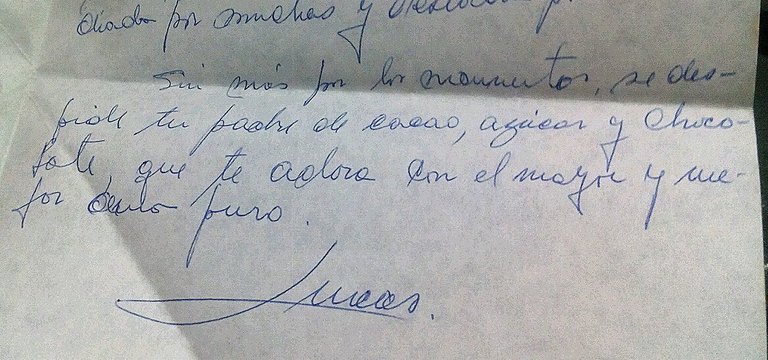 por muchas y
Sin más por los momentos, se des-
pide tu padre de cacao, azúcar y choco-
late, que te adora con el mayor y me-
jor puro.
Lucas.